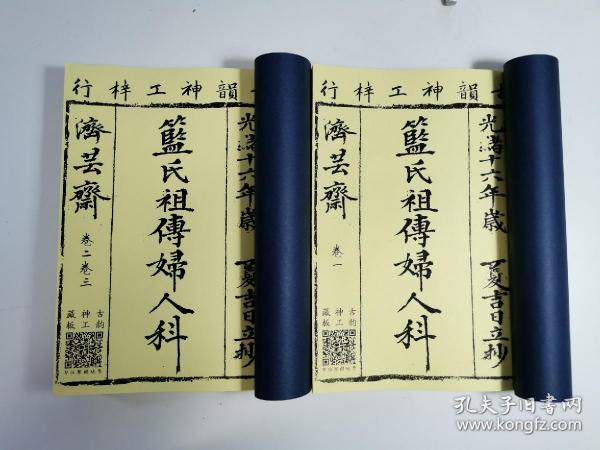 韻神工梓行
光緒十六年歲
籃氏祖傳婦人科
濟芸齋
卷二卷三
古韵
神工
藏板
韻神工梓行
光緒十六年歲 夏吉日立抄
籃氏祖傳婦人科
濟芸齋
卷一
古韵
神工
藏板
孔夫子旧书网
www.kongfz.com